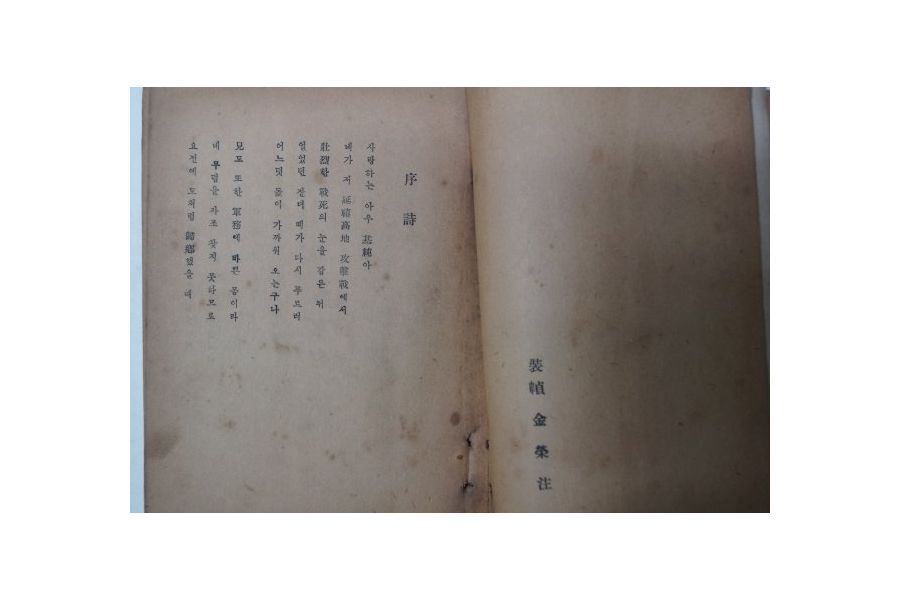 裝幀 金榮注
序詩
사랑하는 아우 基純아
네가 저 延禧高地 攻擊戰에서
壯烈한 戰死의 눈을 감은 뒤
얼었던 잔디 떼가 다시 푸르러
어느덧 봄이 가까워 오는구나
兄도 또한 軍務에 바쁜 몸이라
네 무덤을 자조 찾지 못하므로
요전에 모처럼 歸鄕했을 때